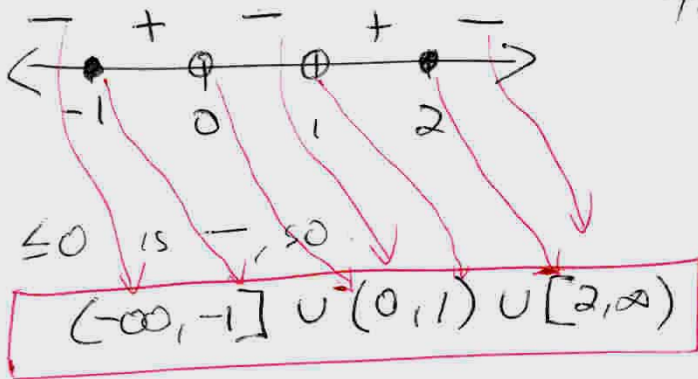 − + − + −
-1 0 1 2
≤0 is −, so
(-∞, -1] ∪ (0, 1) ∪ [2, ∞)